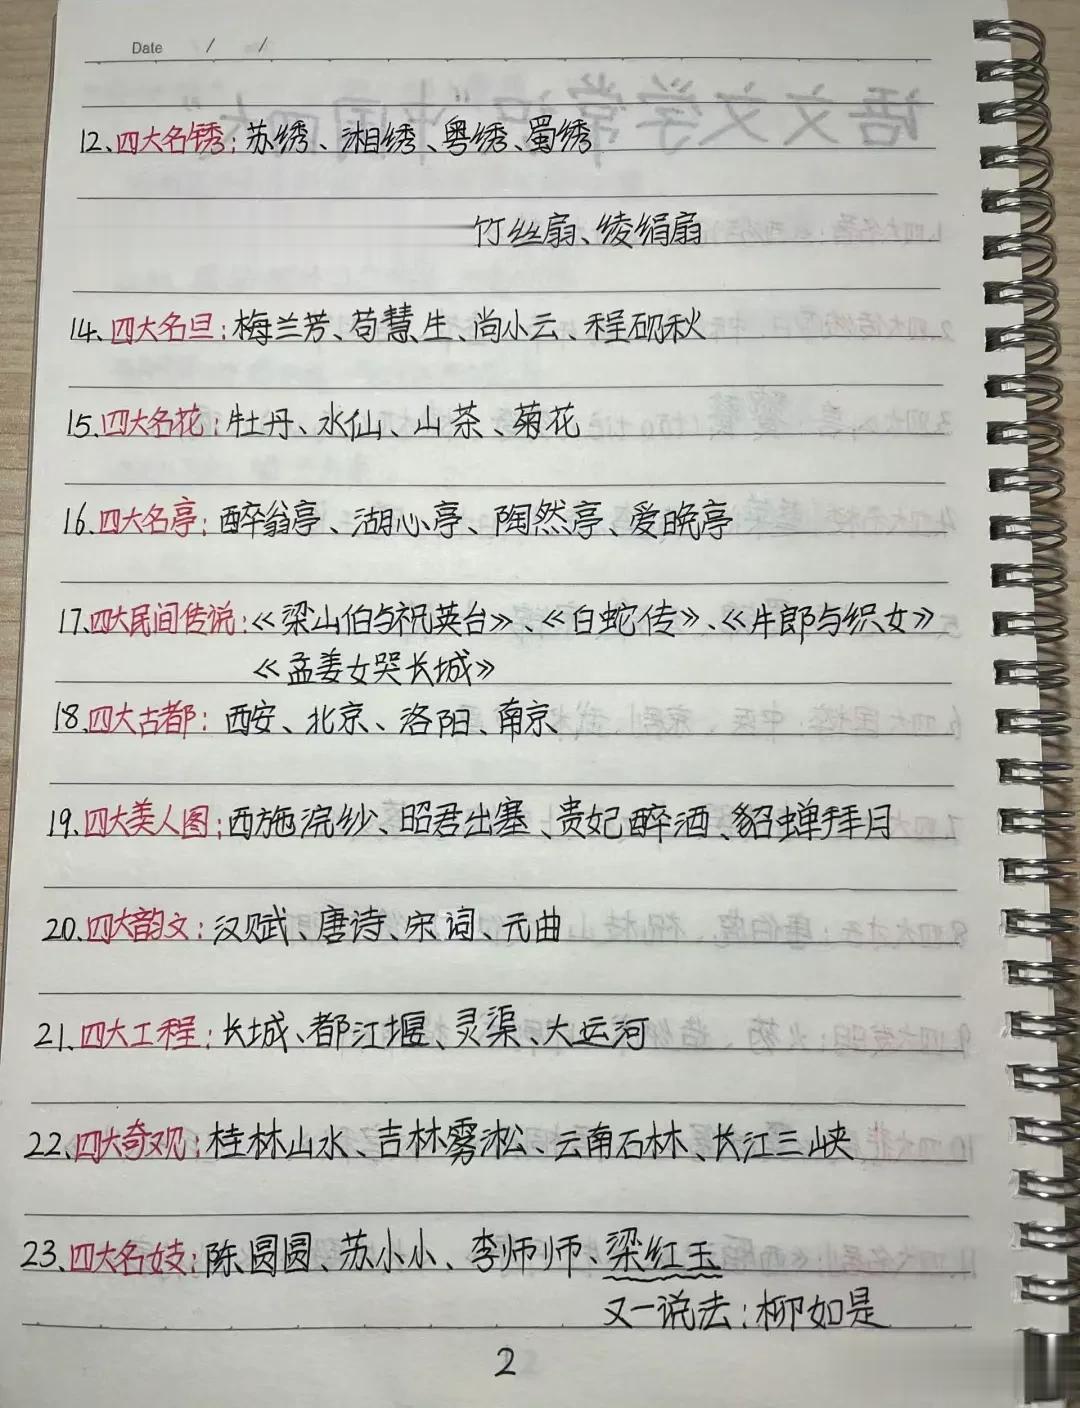 Date / /
12、四大名锈：苏绣、湘绣、粤绣、蜀绣
竹丝扇、绫绢扇
14、四大名旦：梅兰芳、荀慧生、尚小云、程砚秋
15、四大名花：牡丹、水仙、山茶、菊花
16、四大名亭：醉翁亭、湖心亭、陶然亭、爱晚亭
17、四大民间传说：《梁山伯与祝英台》、《白蛇传》、《牛郎与织女》
《孟姜女哭长城》
18、四大古都：西安、北京、洛阳、南京
19、四大美人图：西施浣纱、昭君出塞、贵妃醉酒、貂蝉拜月
20、四大韵文：汉赋、唐诗、宋词、元曲
21、四大工程：长城、都江堰、灵渠、大运河
22、四大奇观：桂林山水、吉林雾凇、云南石林、长江三峡
23、四大名妓：陈圆圆、苏小小、李师师、梁红玉
又一说法：柳如是
2